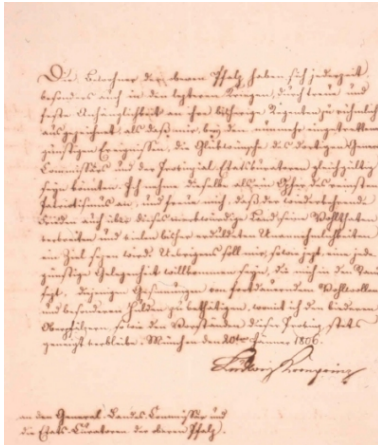 Die Bewohner der oberen Pfalz, haben sich jederzeit,
besonders auch in den letzteren Kriegen, durch treue und
feste Anhänglichkeit an ihre bisherige Regenten zu rühmlich
ausgezeichnet, als daß mir, bey den nunmehr eingetrettenen
günstigen Ereignissen, die Glükwünsche des dortigen General
Commissärs und der Provinzial Etatskuratoren gleichgültig
seyn könnten. Ich nehme dieselbe als ein Opfer des reinsten
Patriotismus an, und freue mich, daß der wiederkehrende
Frieden auch über dieses merkwürdige Land seine Wohlthaten
verbreiten und vielen bisher erduldeten Unannehmlichkeiten
ein Ziel sezen wird. Uebrigens soll mir, so wie jezt, eine jede
günstige Gelegenheit willkommen seyn, die mich in den Stand
sezt, diejenige Gesinnungen von fortdaurenden Wohlwollen
und besonderen Hulden zu bethätigen, womit ich den biederen
Oberpfälzern, so wie den Vorständen dieser Provinz stets
geneigt verbleibe. München den 20ten Jänner 1806.
Ludwig Kronprinz
an den General-Landes-Commissär und
die Etats-Curatoren der oberen Pfalz.